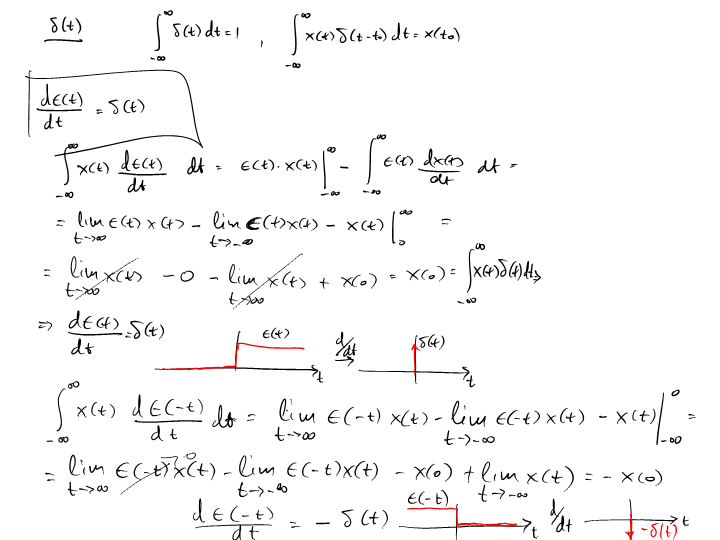 δ(t) ∫_{-∞}^{∞} δ(t) dt = 1 , ∫_{-∞}^{∞} x(t) δ(t-t₀) dt = x(t₀)
dϵ(t)/dt = δ(t)
∫_{-∞}^{∞} x(t) dϵ(t)/dt dt = ϵ(t)·x(t) |_{-∞}^{∞} - ∫_{-∞}^{∞} ϵ(t) dx(t)/dt dt =
= lim_{t→∞} ϵ(t) x(t) - lim_{t→-∞} ϵ(t) x(t) - x(t) |_{0}^{∞} =
= lim_{t→∞} x(t) - 0 - lim_{t→∞} x(t) + x(0) = x(0) = ∫_{-∞}^{∞} x(t) δ(t) dt
⇒ dϵ(t)/dt = δ(t) ϵ(t) t d/dt → δ(t) t
∫_{-∞}^{∞} x(t) dϵ(-t)/dt dt = lim_{t→∞} ϵ(-t) x(t) - lim_{t→-∞} ϵ(-t) x(t) - x(t) |_{-∞}^{0} =
= lim_{t→∞} ϵ(-t) x(t) →0 - lim_{t→-∞} ϵ(-t) x(t) - x(0) + lim_{t→-∞} x(t) = - x(0)
dϵ(-t)/dt = - δ(t) ϵ(-t) t d/dt t -δ(t)